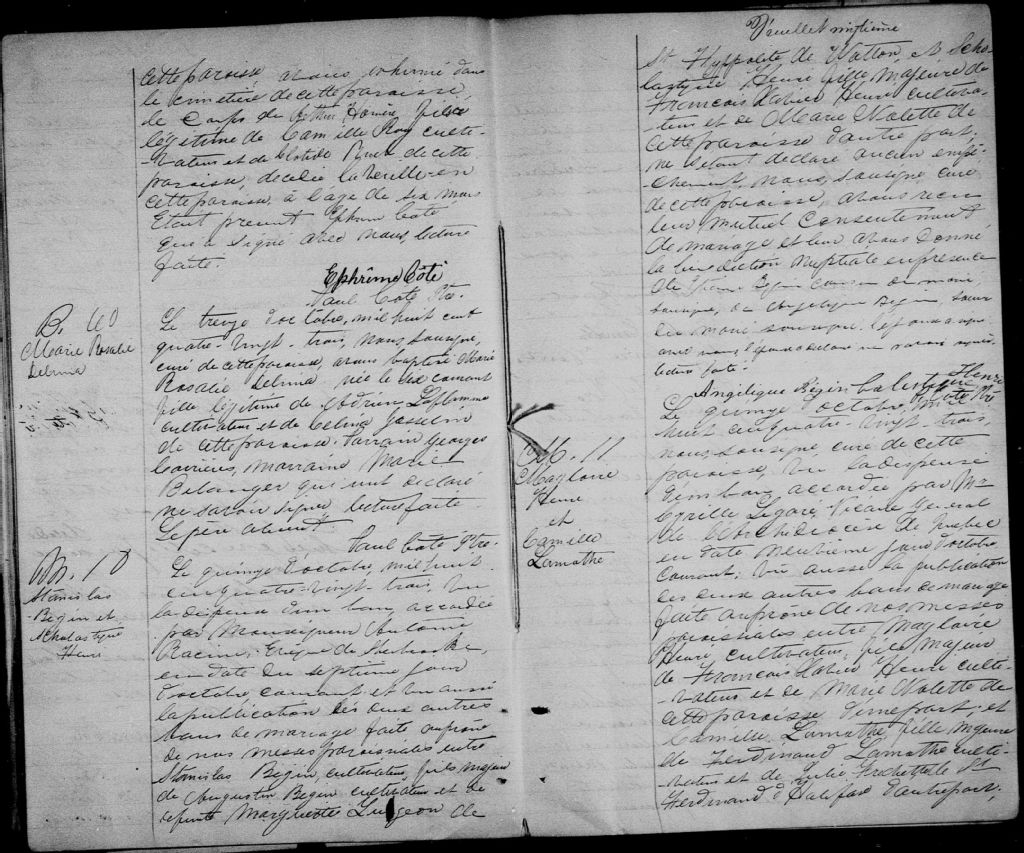 cette paroisse avons inhumé dans
le cimetière de cette paroisse,
le corps de Arthur Homère, fils
légitime de Camille Roy culti-
vateur et de Clotilde de cette
paroisse, décédé la veille en
cette paroisse, à l'âge de six mois
Etait présent Ephrem Coté
qui a signé avec nous, lecture
faite.
Ephrême Côté
Paul Coté Ptre.
B. 60
Marie Rosalie
Delima
Le treize d'octobre, mil huit cent
quatre-vingt-trois, nous, soussigné,
curé de cette paroisse, avons baptisé Marie
Rosalie Delima née le six courant
fille légitime de Adrien Laflamme
cultivateur et de Celina Gosselin
de cette paroisse. Parrain Georges
marraine Marie
Belanger qui ont déclaré
ne savoir signer, lecture faite.
Le père absent.
Paul Coté Ptre.
M. 10
Stanislas
Begin et
Scholastique
Henri
Le quinze d'octobre, mil huit
cent quatre-vingt-trois, vu
la dispense d'un ban, accordée
par Monseigneur Antoine
Racine, Evêque de Sherbrooke,
en date du septième jour
d'octobre courant, et vu aussi
la publication des deux autres
bans de mariage faite au prône
de nos messes paroissiales entre
Stanislas Begin, cultivateur, fils majeur
de Augustin Begin cultivateur et de
défunte Marguerite Turgeon de
Feuillet
St Hyppolite de Wotton, et Scho-
lastique Henri fille majeure de
Francois Xavier Henri cultiva-
teur et de Marie Nolette de
cette paroisse d'autre part;
ne s'étant déclaré aucun empê-
chement, nous, soussigné, curé
de cette paroisse, avons reçu
leur mutuel consentement
de mariage et leur avons donné
la bénédiction nuptiale en présence
de Begin cousin du marié,
soussigné, et Angelique Begin, soeur
du marié soussignée. L'époux a signé
avec nous, l'épouse a déclaré ne savoir signer.
lecture faite.
Angélique Bégin
M. 11
Magloire
Henri
et
Camille
Lamothe
Le quinze d'octobre, mil
huit cent quatre-vingt-trois,
nous, soussigné, curé de cette
paroisse, vu la dispense
d'un ban, accordée par Mr
Cyrille Légaré, Vicaire Général
de l'Archidiocèse de Quebec
en date neuvième jour d'octobre
courant; vu aussi la publication
des deux autres bans de mariage
faite au prône de nos messes
paroissiales entre Magloire
Henri, cultivateur, fils majeur
de Francois Xavier Henri culti-
vateur et de Marie Nolette de
cette paroisse d'une part; et
Camille Lamothe, fille mineure
de Ferdinand Lamothe culti-
vateur et de Julie Frechette de St
Ferdinand d'Halifax d'autre part;